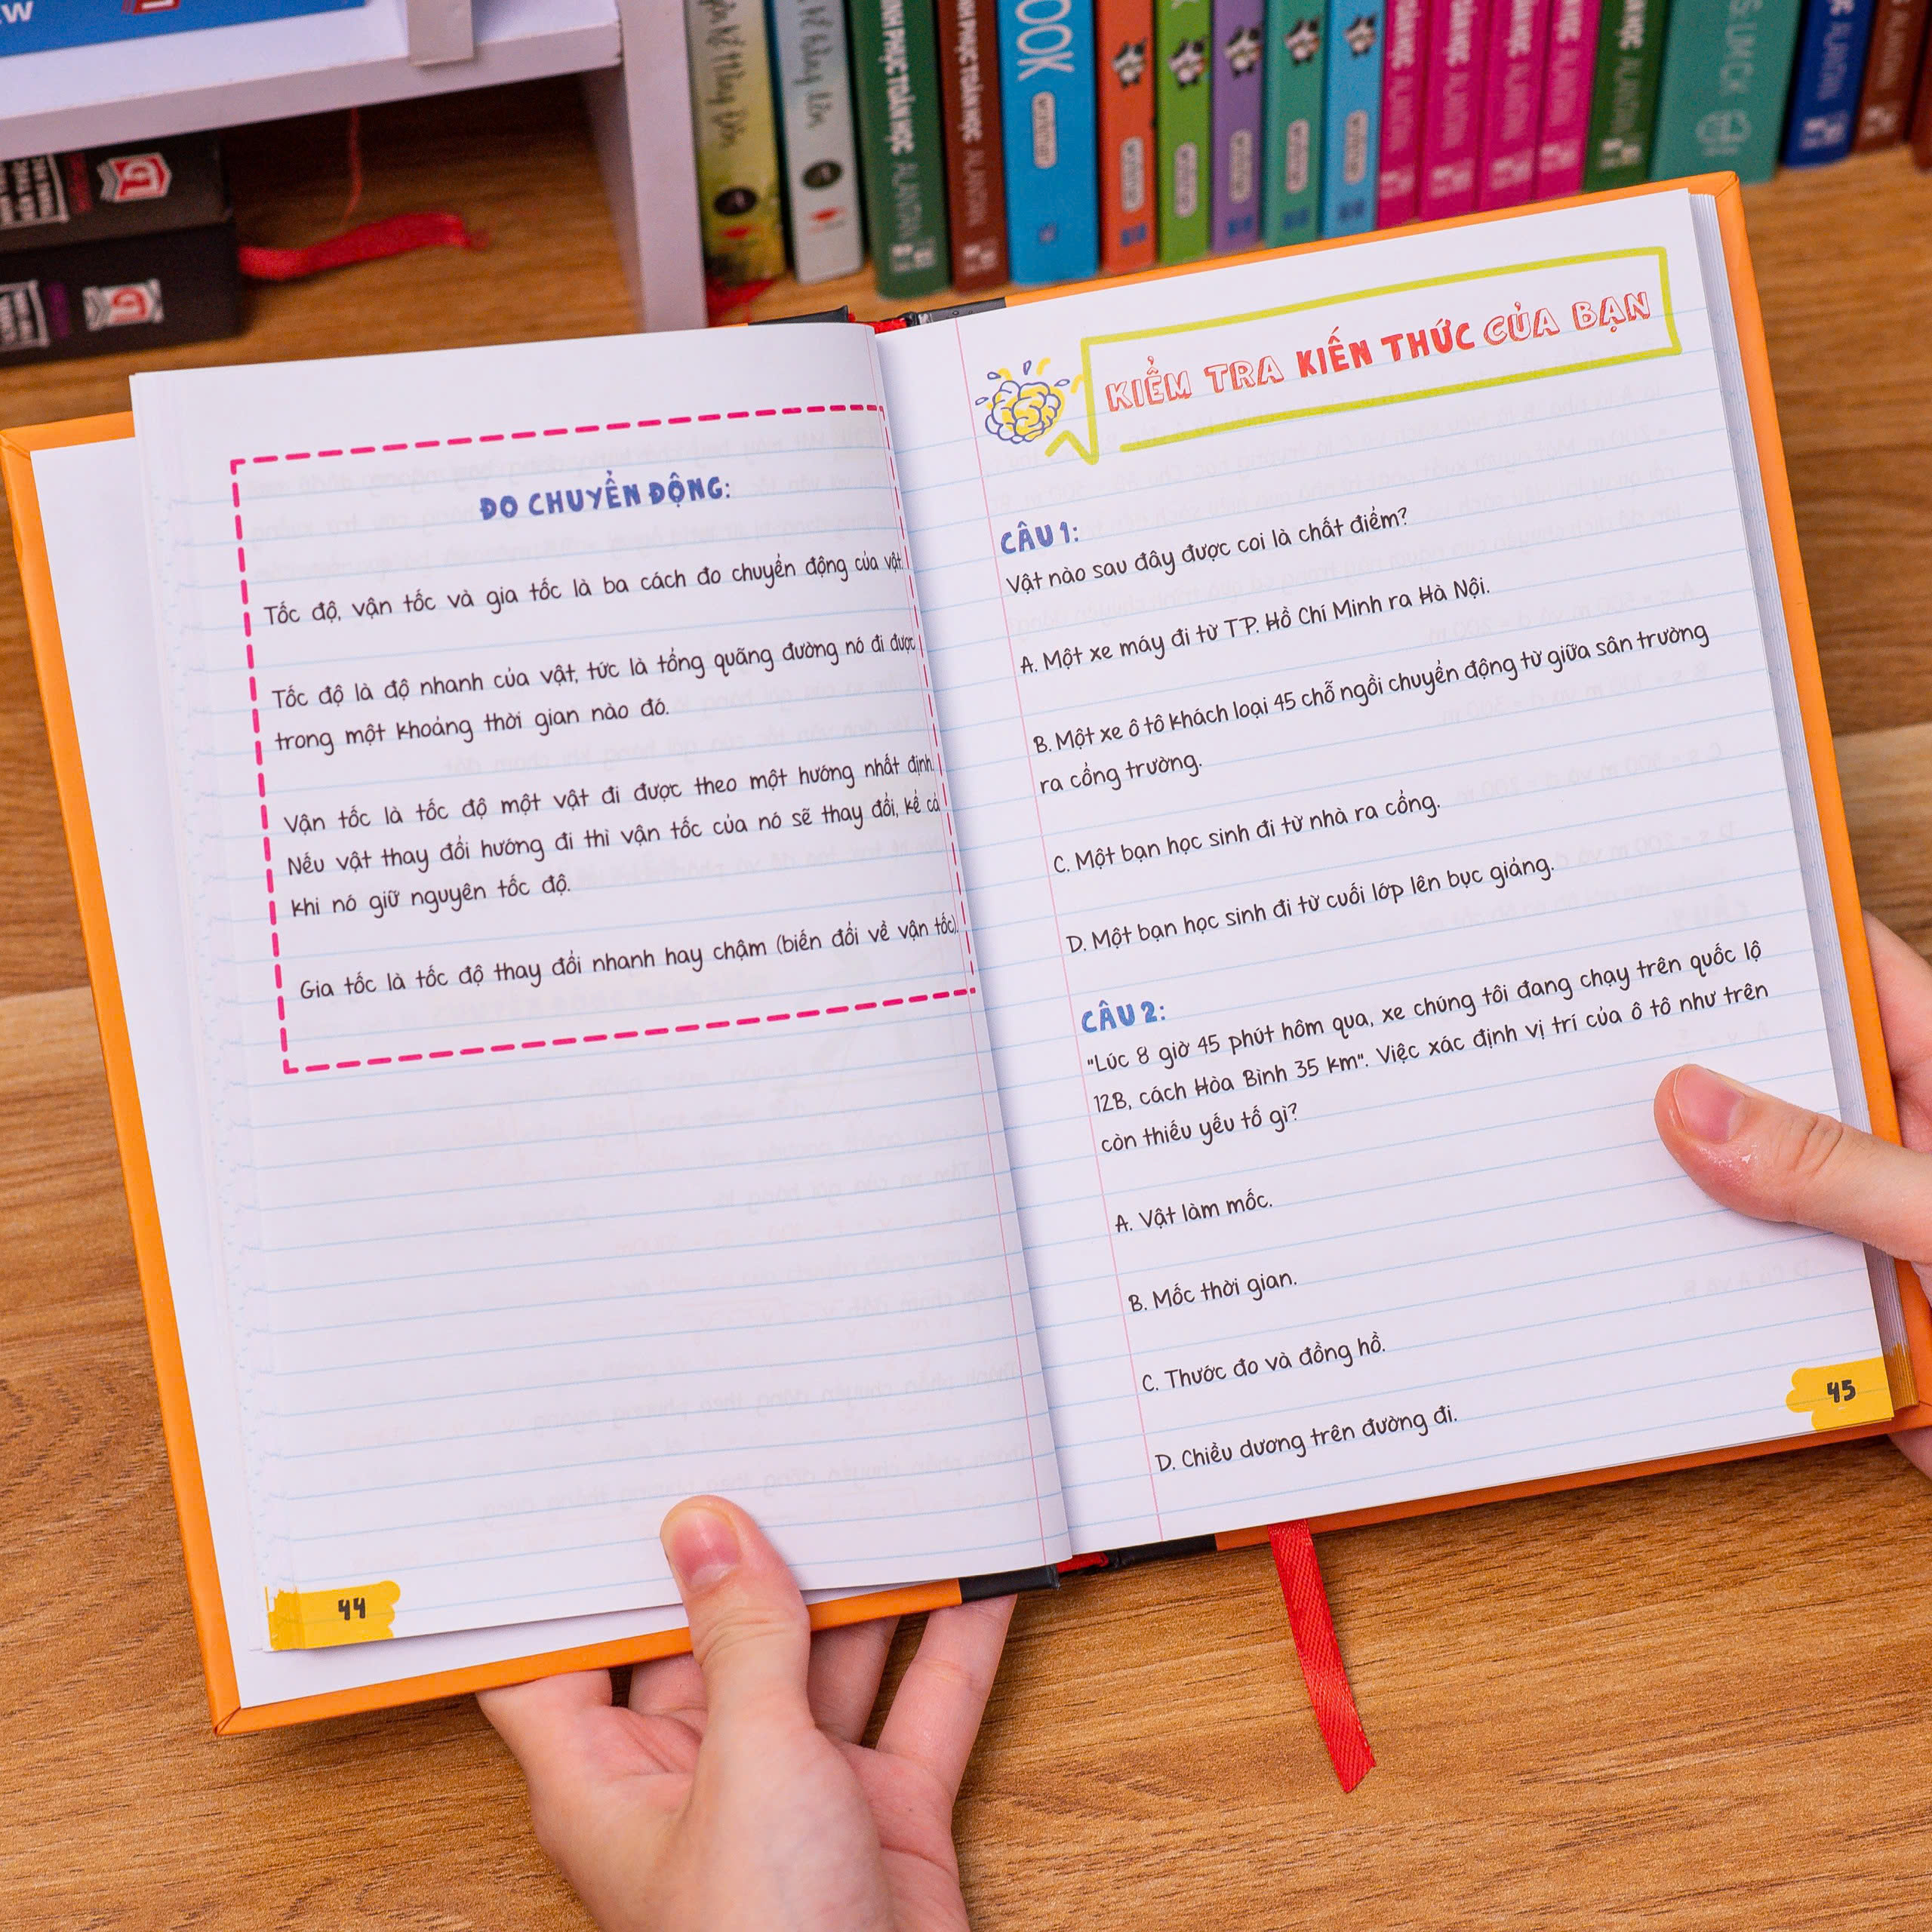 ĐO CHUYỂN ĐỘNG:
Tốc độ, vận tốc và gia tốc là ba cách đo chuyển động của vật.
Tốc độ là độ nhanh của vật, tức là tổng quãng đường nó đi được
trong một khoảng thời gian nào đó.
Vận tốc là tốc độ một vật đi được theo một hướng nhất định.
Nếu vật thay đổi hướng đi thì vận tốc của nó sẽ thay đổi, kể cả
khi nó giữ nguyên tốc độ.
Gia tốc là tốc độ thay đổi nhanh hay chậm (biến đổi về vận tốc).
44
KIỂM TRA KIẾN THỨC CỦA BẠN
CÂU 1:
Vật nào sau đây được coi là chất điểm?
A. Một xe máy đi từ TP. Hồ Chí Minh ra Hà Nội.
B. Một xe ô tô khách loại 45 chỗ ngồi chuyển động từ giữa sân trường
ra cổng trường.
C. Một bạn học sinh đi từ nhà ra cổng.
D. Một bạn học sinh đi từ cuối lớp lên bục giảng.
CÂU 2:
"Lúc 8 giờ 45 phút hôm qua, xe chúng tôi đang chạy trên quốc lộ
12B, cách Hòa Bình 35 km". Việc xác định vị trí của ô tô như trên
còn thiếu yếu tố gì?
A. Vật làm mốc.
B. Mốc thời gian.
C. Thước đo và đồng hồ.
D. Chiều dương trên đường đi.
45